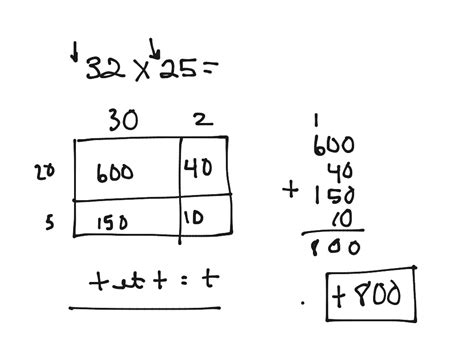 32 x 25 =
30 2
20 600 40
5 150 10
1
600
40
+ 150
10
800
+ et + = +
. +800